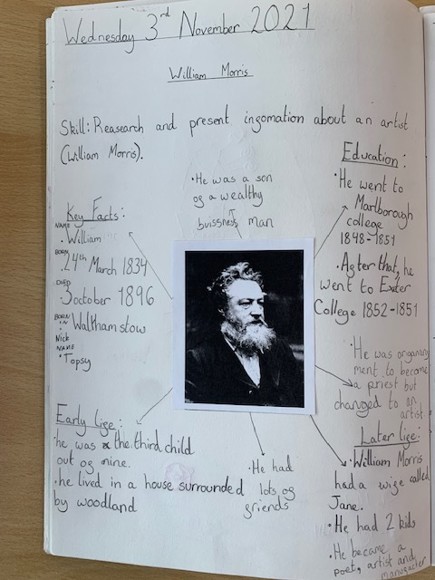 Wednesday 3rd November 2021
William Morris
Skill: Reasearch and present ingomation about an artist
(William Morris).
• He was a son
og a wealthy
buissness man
Education:
• He went to
Marlborough
college
1848-1851
• Agter that, he
went to Exeter
College 1852-1851
Key Facts:
NAME
• William
BORN
24th March 1834
DIED
3 october 1896
BORN
in
• Walthamstow
Nick
name
• Topsy
• He was
ment to become
a priest but
changed to an
artist
Early lige:
• he was the third child
out og nine.
• he lived in a house surrounded
by woodland
• He had
lots og
griends
Later lige:
• William Morris
had a wige called
Jane.
• He had 2 kids
• He became a
poet, artist and